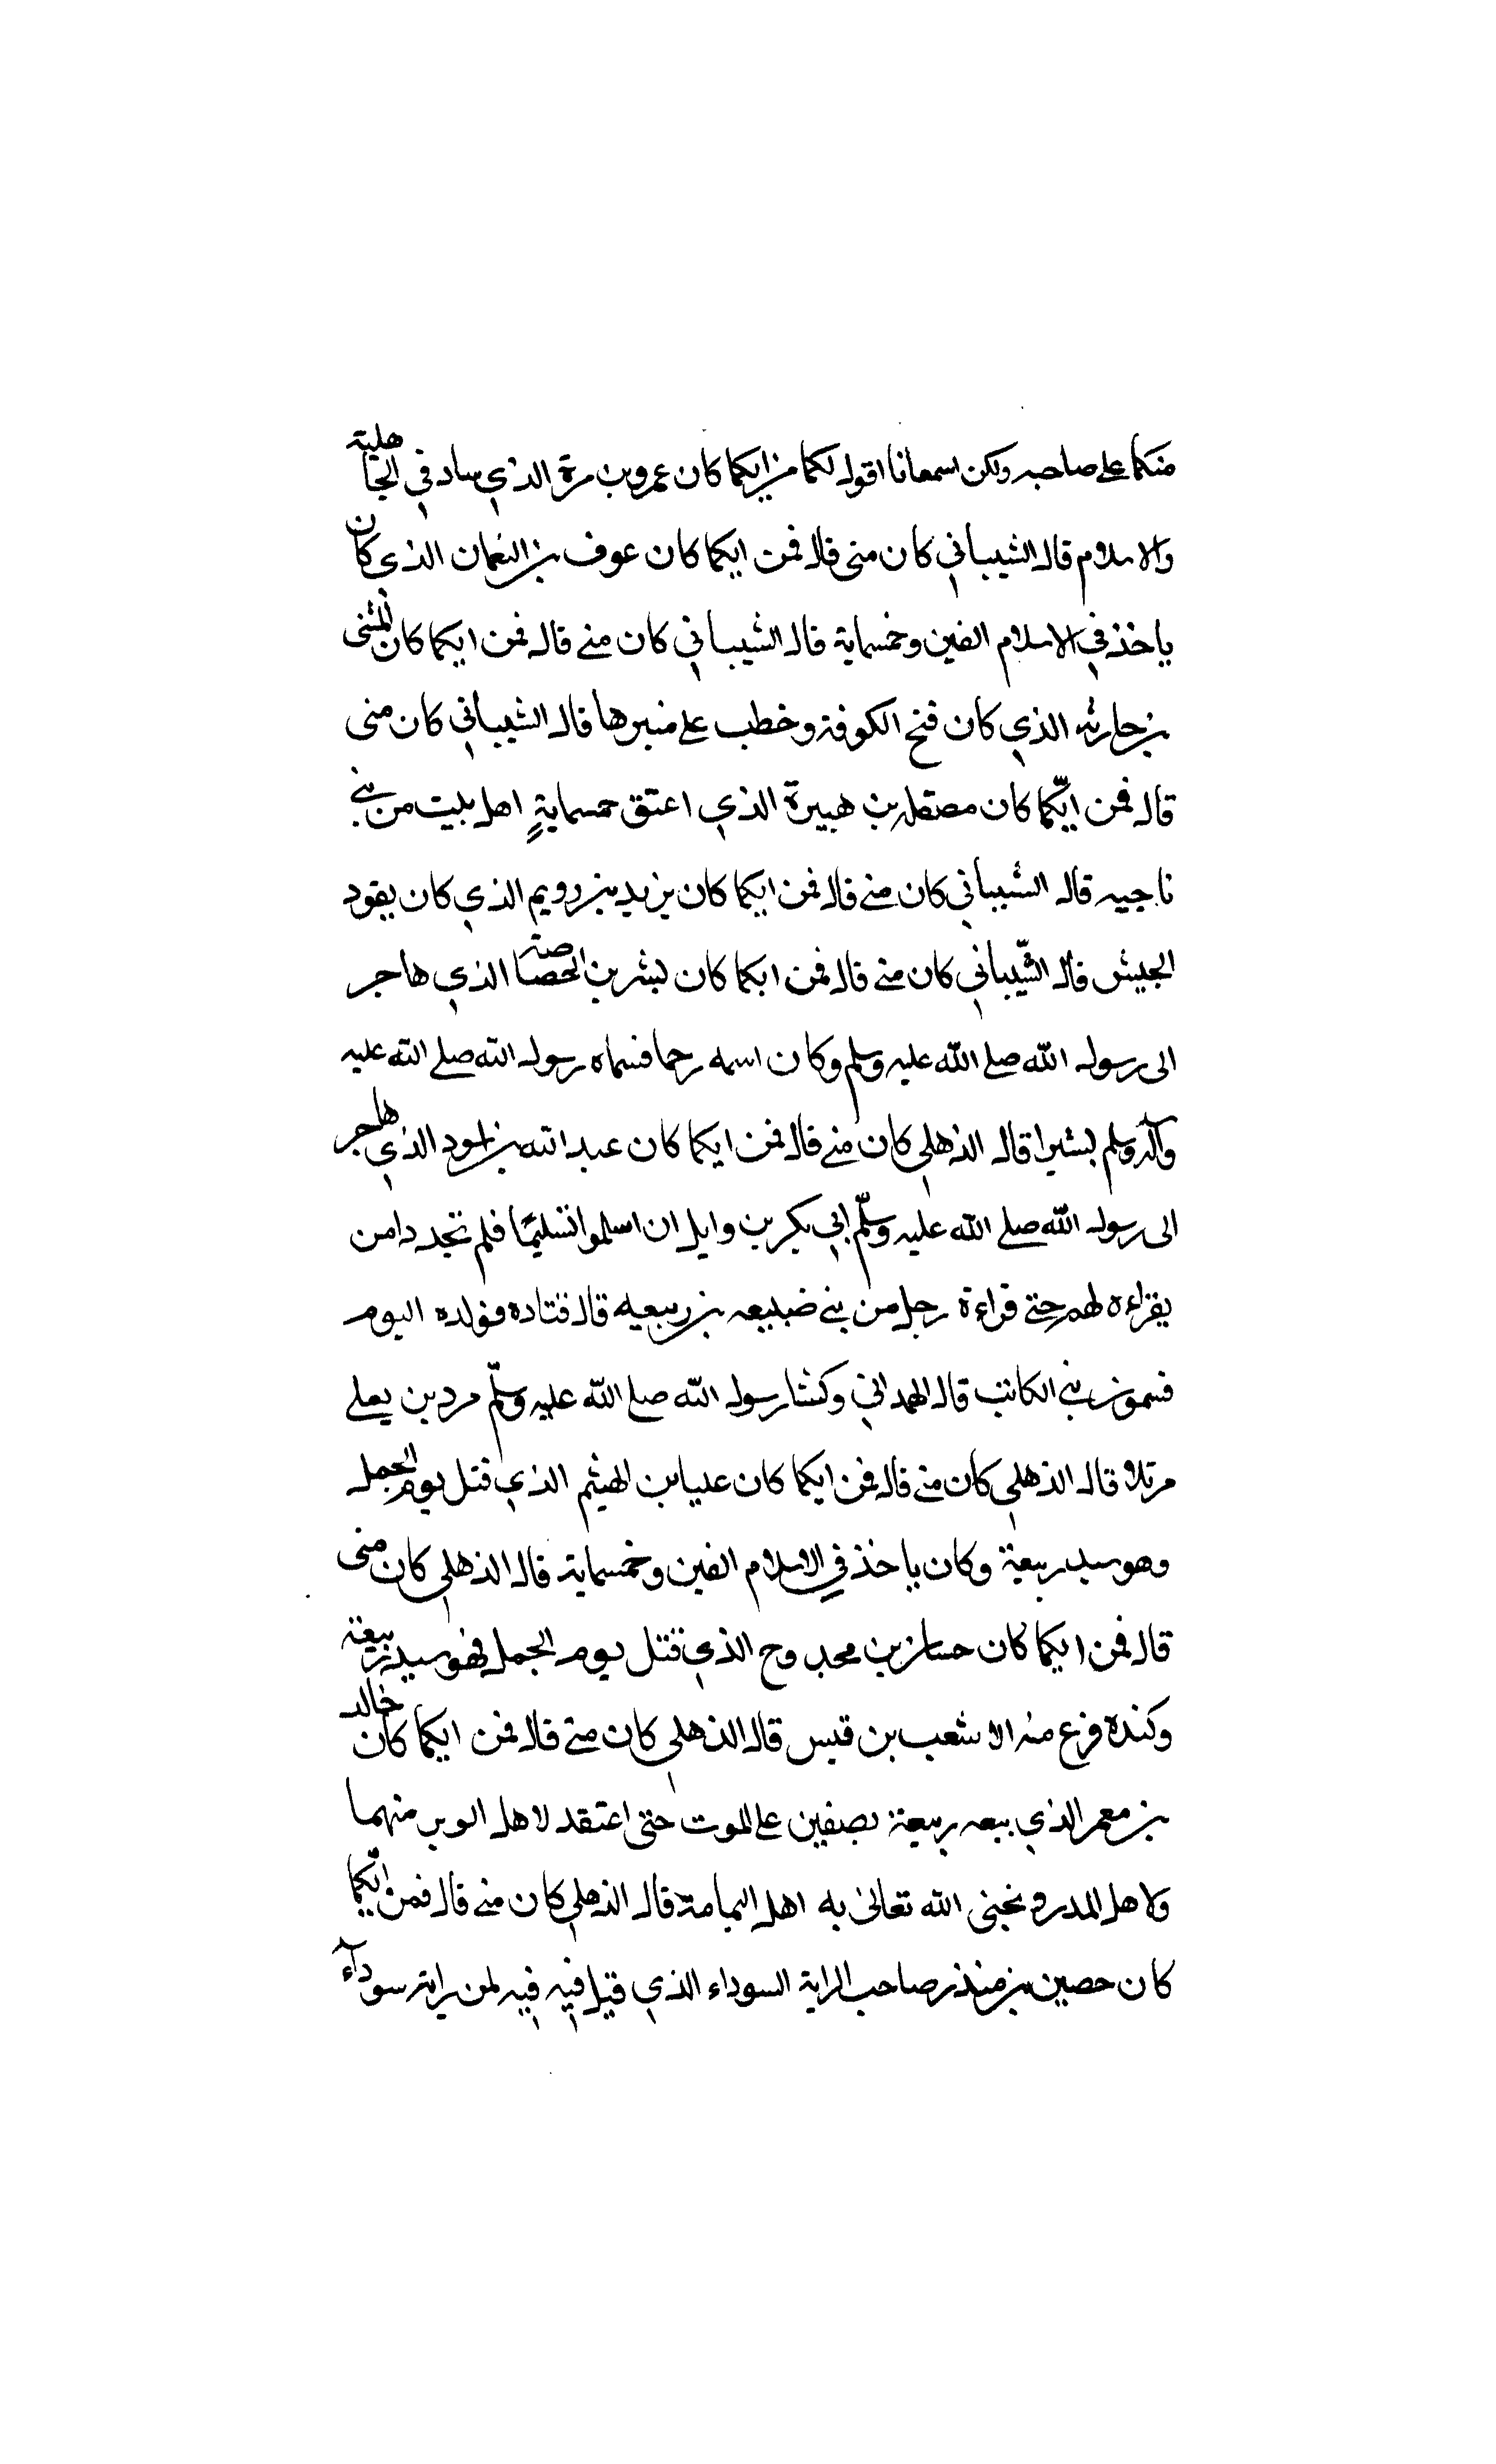 منكما على صاحبه ولكن اسمعانا اقول لكما من ايكما كان عمرو بن مرة الذي ساد في الجاهلية
والاسلام قال الشيباني كان مني قال فمن ايكما كان عوف بن النعمان الذي كان
ياخذ في الاسلام الفين وخمسماية قال الشيباني كان مني قال فمن ايكما كان المثنى
بن حارثه الذي كان فتح الكوفة وخطب على منبرها قال الشيباني كان مني
قال فمن ايّكما كان مصقله بن هبيرة الذي اعتق خمسمايةٍ اهل بيت من بني
ناجيه قال الشيباني كان مني قال فمن ايكما كان يزيد بن رويم الذي كان يقود
الجيش قال الشّيباني كان مني قال فمن ايكما كان بشر بن الخصاصة الذي هاجر
الى رسول الله صلى الله عليه وسلم وكان اسمه رحما فسماه رسول الله صلى الله عليه
وآله وسلم بشيرا قال الذهلي كان مني قال فمن ايكما كان عبد الله بن اسود الذي هاجر
الى رسول الله صلى الله عليه وسلّم ابي بكر بن وايل ان اسلموا تسليمًا فلم نجد دامن
يقراءه لهم حتى قراءة رجل من بني ضبيعه بن ربيعيه قال قتادة فولده اليوم
فسمون بني الكاتب قال الهمداني وكتشا رسول الله صلى الله عليه وسلّم مرد بن يعلى
مرتلا قال الذهلي كان مني قال فمن ايكما كان عليا بن الهيثم الذي قتل يوم الجمل
وهو سيد ربيعة وكان ياخذ في الاسلام الفين وخمسماية قال الذهلي كان مني
قال فمن ايكما كان حسان بن محدوح الذي قتل يوم الجمل فهو سيد ربيعة
وكنده فزع منه الاشعب بن قيس قال الذهلي كان مني قال فمن ايكما كان خالد
بن معمر الذي بيعه ربيعة بصفين على الموت حتى اعتقد لاهل الوبر منهما
ولاهل المدر ونجنى الله تعالى به اهل اليمامة قال الذهلي كان مني قال فمن ايّكما
كان حصين بن منذر صاحب الراية السوداء الذي قيل فيه فيه لمن راية سودآء